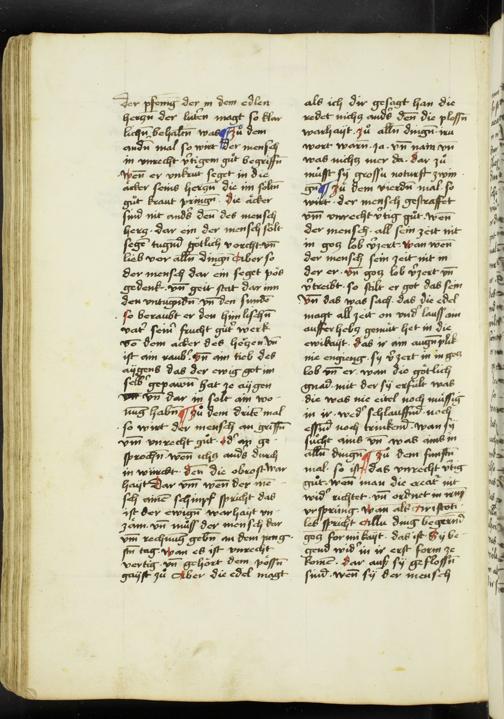 der pfennig der in dem edlen
herczn der lutern magt so klar
lichn behaltn was Zů dem
andn mal so wirt der mensch
in vnrecht vtigem gůt begriffn
Wen er vnkrut seget in die
äcker seins hern die im soltn
gůt kraut pringn die äcker
sind nit ands den des mensch
herczn dar ein der mensch solt
segn tugnd götlich vorcht vn
lieb vor alln dingn Aber so
der mensch dar ein seget pös
gedenk vn geit stat dar inn
den vntugndn vn den sundn
so beraubt er den himlischn
vatr seinr frucht gůt werk
vo dem acker des hczen vn
ist ain raubr vn ain dieb des
aygens das der ewig got im
selb gepawn hat ze aygen
vn dar in solt ain wo
nug habn Zů dem dritn mal
so wirt der mensch an griffn
vm vnrecht gůt
sprochn wen nichs ands durch
in wircht den die obrost war
hayt Dar vm wen der me
sch einen schimpf spricht das
ist der ewign warhayt vn
zäm vn můss der mensch dar
vm rechnug gebn an dem jung
stn tag wan es ist vnrecht
vertig vn gehört dem pösn
gayst zů Aber die edel magt
als ich dir gesagt han die
redet nichs ands den die plossn
warhayt zů alln dingn irn
wort warn ja vn nain vn
was nichs mer da dar zů
můsst sy grossu noturft zwin
gn Zů dem vierdn mal so
wirt der mensch gestraffet
vm vnrecht vtig gůt wen
der mensch all sein zeit nit
in gocz lob vzert wan wen
der mensch sein zeit nit in
der er vn gocz lob vzert vn
vtreibt so stilt er got das sein
Vn das was sach das die edel
magt all zeit on vnd lass am
aufferhebt gemüt het in die
ewikayt das ir am augnplik
nie engieng sy vzert in in gocz
lob vn er wan die götlich
gnad mit der sy erfult was
die was nie eitel noch müssig
in ir wedr schlauffnd noch
essnd noch trinkend wan sy
sücht ains vn was ains in
alln dingn Zů dem funftn
mal so ist das vnrecht vtig
gůt wen man die creatur nit
widr richtet vn ordnet in irn
vrsprung wan als Aristoti
les spricht Allu ding begernd
gocz formikayt das ist Sy be
gernd widr in ir erst form ze
komen dar auss sy geflossn
sind wen sy der mensch